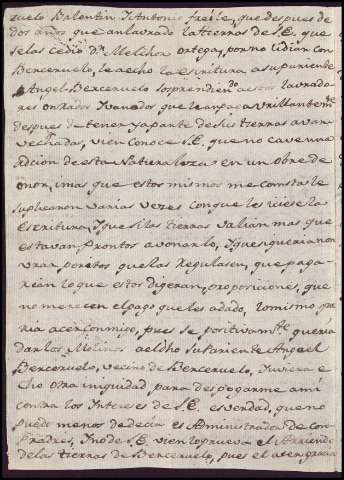 zuelo Balentin, i Antonio freile, que despues de
dos años que an labrado las tierras de S.E. que
se las cedio Dn Melchor ortega, por no lidiar con
Benceruelo, le a echo la escritura a su pariente
Angel Benceruelo sorprendiendo a estos labrado
res onrados
despues de tener ya parte de sus tierras a van
vechadas, vien conoce S.E. que no cave una
acion de esta Naturaleza en un obre de
onor, i mas que estos mismos me consta le
suplicaron varias vezes con que les iciese la
Escritura, i que si las tierras valian mas que
estavan prontos a vonarlo, i que si querian non
vrar peritos que las Regulasen, que paga
rian lo que estos digeran, proporciones, que
no merecen el pago que les a dado, lo mismo que
ria acer conmigo, pues se positivamte queria
dar los Molinos a el dho su Pariente Angel
Benceruelo, vecino de Benceruelo, i uviera e
cho otra iniquidad para despogarme a mi
contra los Intereses de S.E. es verdad, que no
puede menos de decia es Administrador de Con
Pradres, i no de S.E. vien lo prueva el Arriendo
de las tierras de Benceruelo, pues el aten gracia